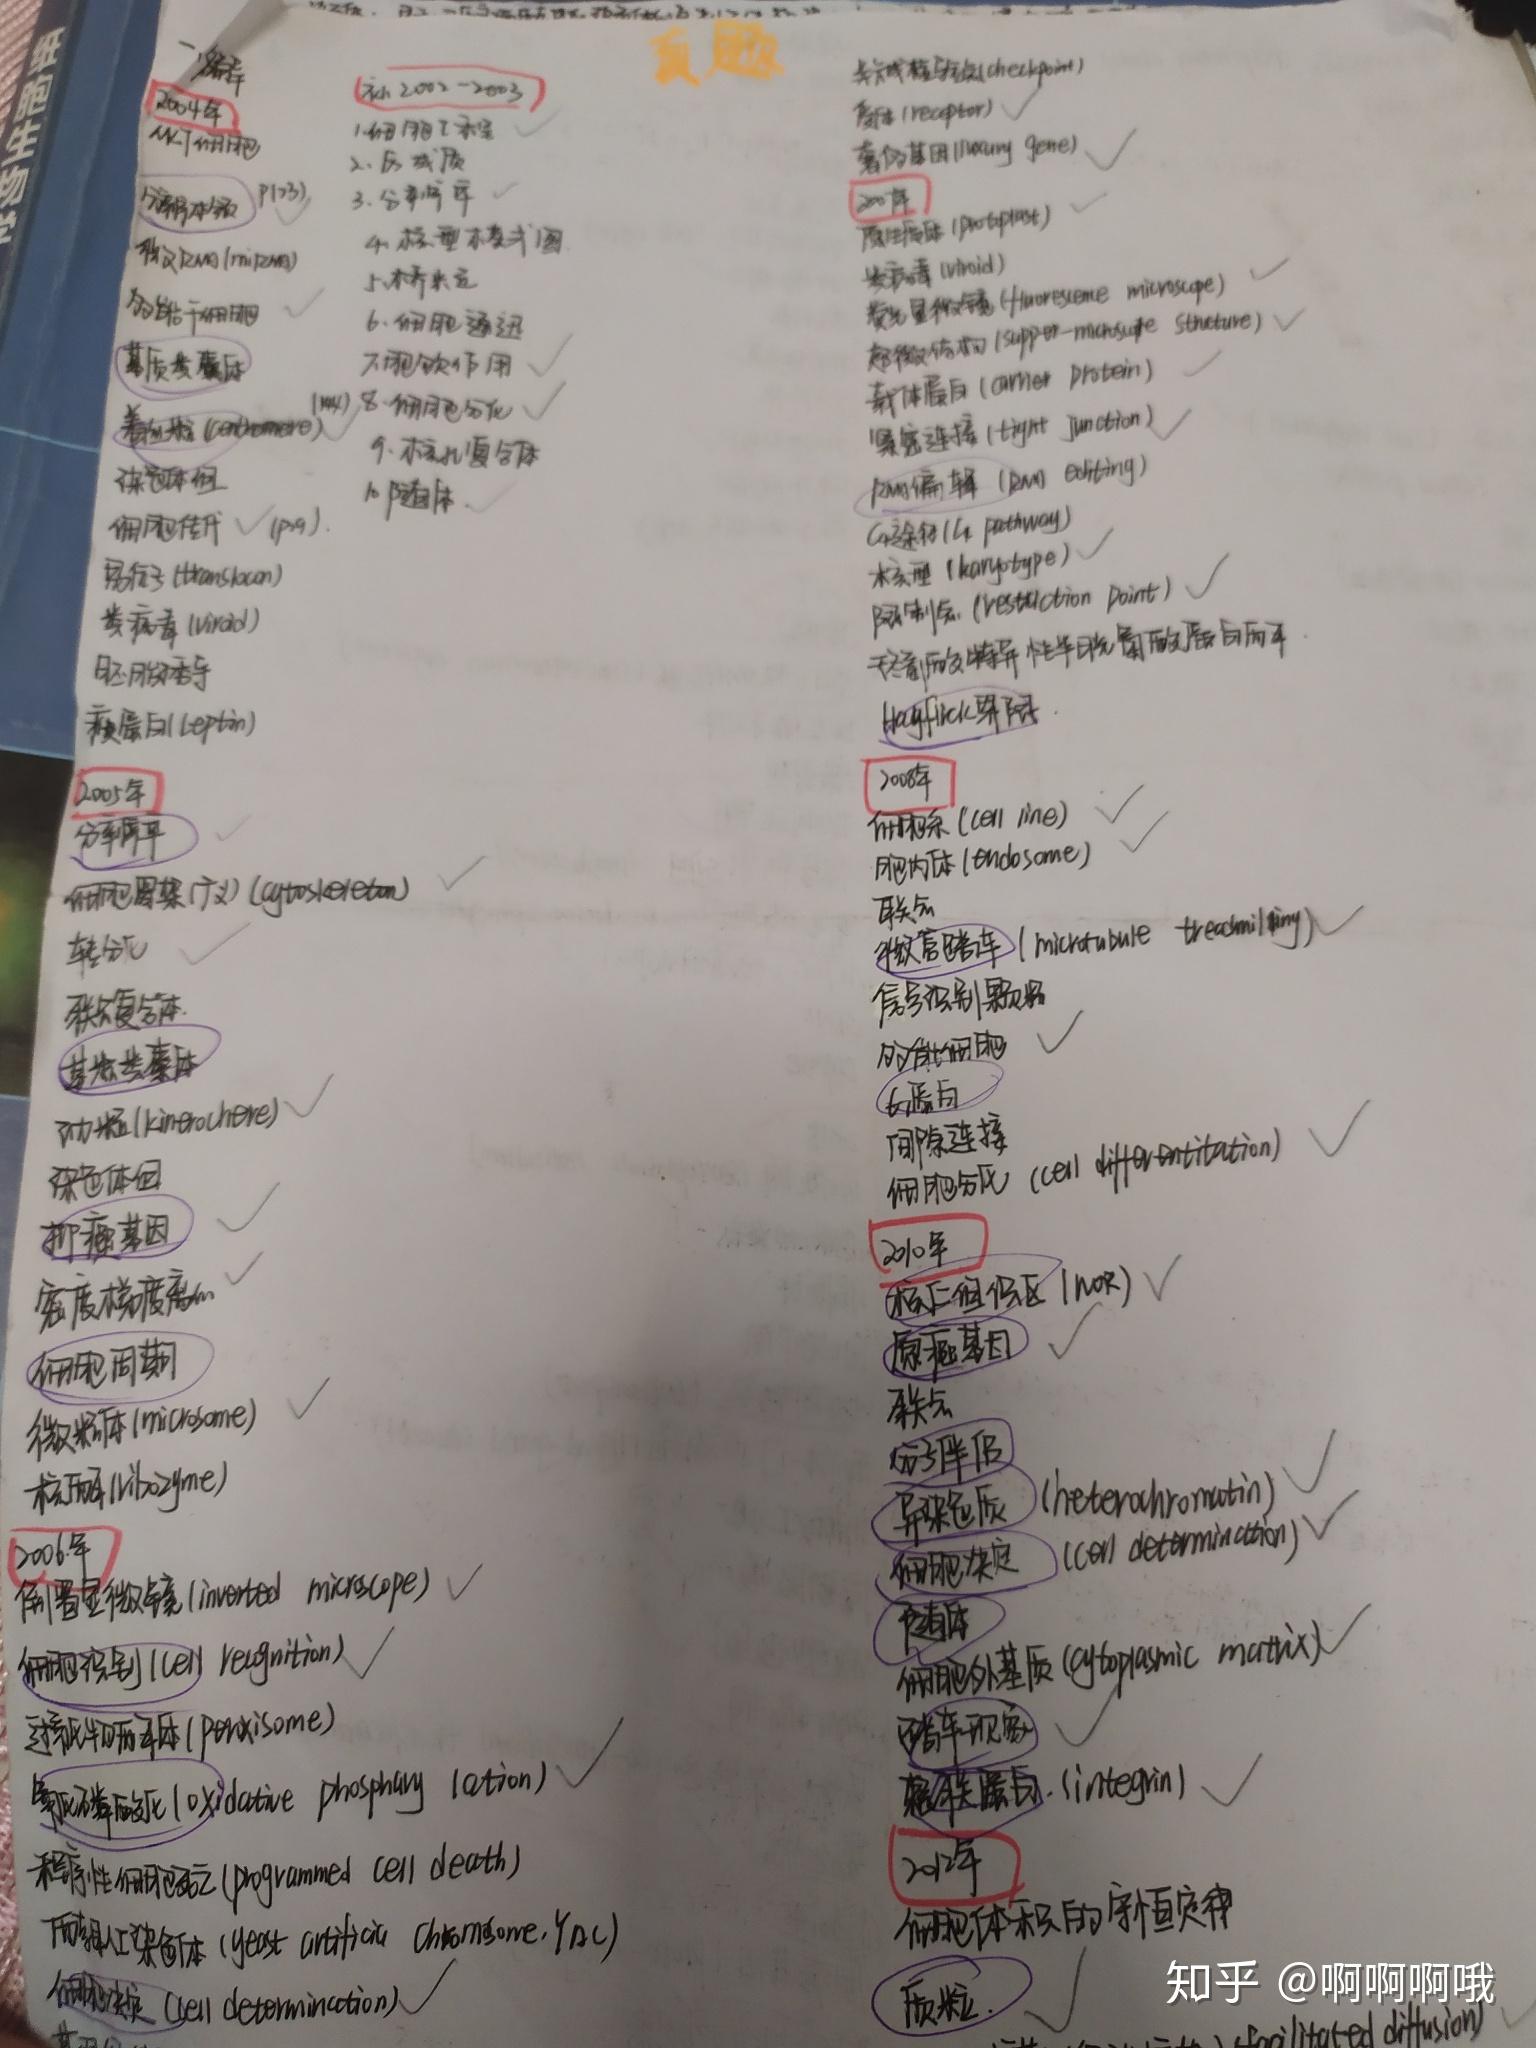 真题
2004年
NKT细胞
分辨本领 P(23)
反义RNA(miRNA)
多能干细胞
基质类囊体
着丝粒(centromere)
染色体组
细胞传代 (P49).
易位子(translocon)
类病毒(viroid)
胚胎诱导
瘦蛋白(Leptin)
2005年
分辨率
细胞骨架(广义)(cytoskeleton)
转分化
联会复合体.
基粒类囊体
动粒(kinetochere)
染色体组
抑癌基因
密度梯度离心
细胞周期
微粒体(microsome)
核酶(ribozyme)
2006年
倒置显微镜(inverted microscope)
细胞识别(cell recognition)
过氧化物酶体(peroxisome)
氧化磷酸化(oxidative phosphory lation)
程序性细胞死亡(programmed cell death)
酵母人工染色体(yeast artificial chromosome, YAC)
细胞决定(cell determination)
2002-2003
1.细胞工程
2.区域质
3.分辨率
4.核型模式图
5.桥粒
6.细胞通迅
7.胞饮作用
8.细胞分化
9.核孔复合体
10.随体
(checkpoint)
受体(receptor)
奢侈基因(luxury gene)
2007年
原生质体(protoplast)
类病毒(viroid)
荧光显微镜(fluorescence microscope)
超微结构(supper-microscope structure)
载体蛋白(carrier protein)
紧密连接(tight junction)
RNA编辑(RNA editing)
C4途径(C4 pathway)
核型(karyotype)
限制点(restruction point)
天冬氨酸特异性半胱氨酸蛋白酶.
Hayflick界限.
2008年
细胞系(cell line)
胞内体(endosome)
联会
微管踏车(microtubule treadmilling)
信号识别颗粒
多能细胞
G蛋白
间隙连接
细胞分化(cell differentitation)
2010年
核仁组织区(NOR)
原癌基因
联会
分子伴侣
异染色质(heterochromatin)
细胞决定(cell determination)
随体
细胞外基质(cytoplasmic matrix)
踏车现象
整联蛋白.(integrin)
2012年
细胞体积的守恒定律
质粒.
(facilitated diffusion)
知乎 @啊啊啊哦